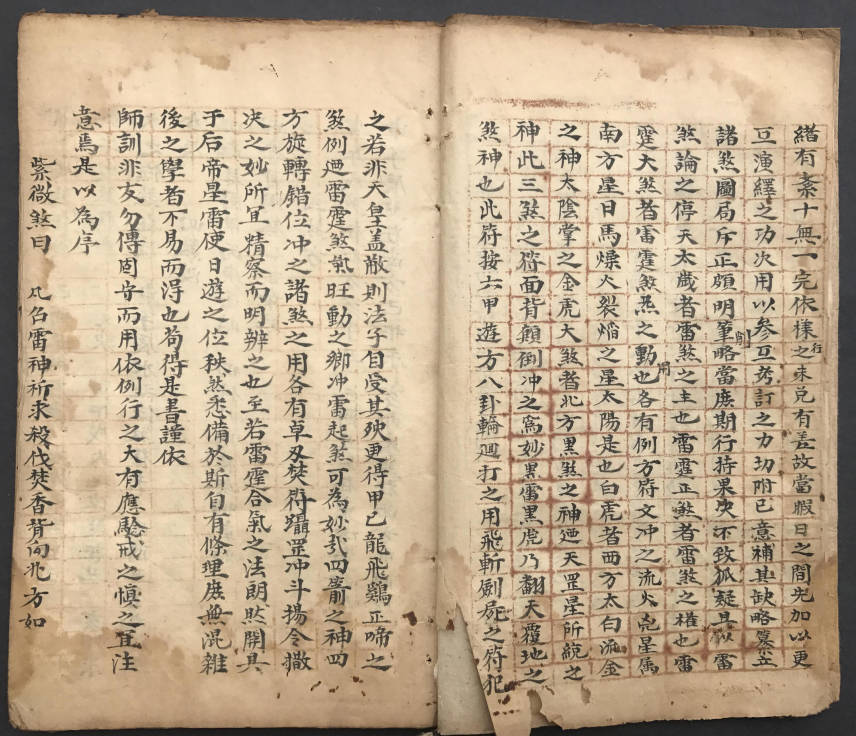 緒有紊十無一完依樣行之未免有差故當暇日之間尤加以更
互演繹之功次用以參互考訂之力切附己意補其缺略纂立
諸煞圖局斥正頗明筆削略當庶期行持果决不致狐疑且以雷
煞論之停天太歲者雷煞之主也雷霆正煞者雷煞之權也雷
霆大煞者雷霆煞炁之動用也各有例方符文冲之流火兇星馬
南方星日馬燥火裂焰之星太陽是也白虎者西方太白流金
之神太陰掌之金虎大煞者北方黑煞之神廼天罡星所統之
神此三煞之符面背顛倒冲之寫妙黑雷黑虎乃翻天覆地之
煞神也此符按六甲遊方八卦輪廻打之用飛斬劍屍之符犯
之若非天皇盖散則法子自受其殃更得甲己龍飛鷄正啼之
煞例廼雷霆煞氣旺動之鄉冲雷起煞可為妙哉四箭之神四
方旋轉錯位冲之諸煞之用各有卓叒焚符躡罡冲斗揚令撒
决之妙所宜精察而明辨之也至若雷霆合氣之法朗然開具
于后帝星雷使日遊之位秩然悉備於斯自有條理庶無混雜
後之學者不易而淂也苟得是書謹依
師訓非友勿傳固守而用依例行之大有應驗戒之慎之宜注
意焉是以為序
紫微煞曰 凡召雷神祈求殺伐焚香背向兆方如